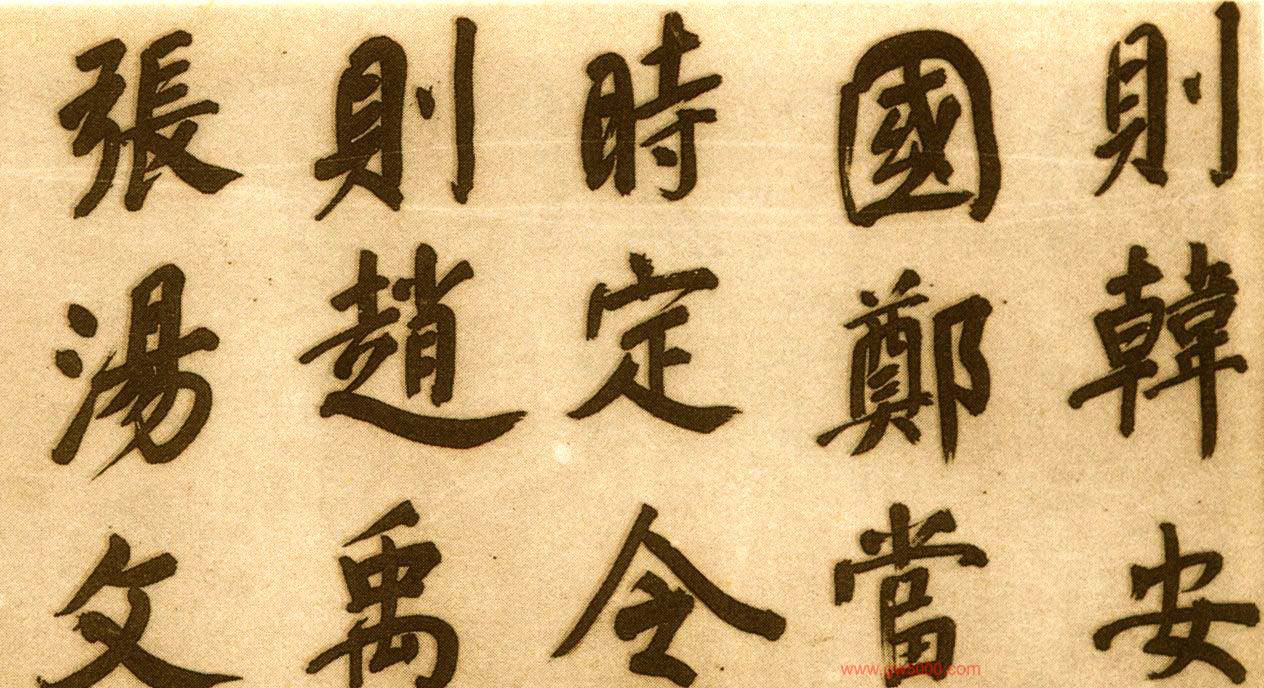 則韓安
國鄭當
時定令
則趙禹
張湯文